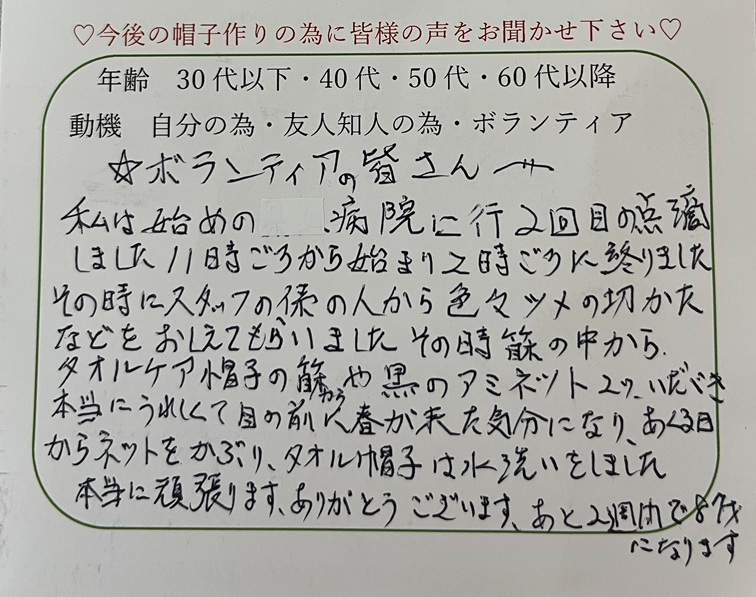 ♡今後の帽子作りの為に皆様の声をお聞かせ下さい♡
年齢 30代以下・40代・50代・60代以降
動機 自分の為・友人知人の為・ボランティア
☆ボランティアの皆さんへ
私は始めの 病院に行2回目の点滴
しました11時ごろから始まり2時ごろに終りました
その時にスタッフの係の人から色々ツメの切かた
などをおしえてもらいました その時 の中から
タオルケア帽子の や黒のアミネット2ツ、いただき
本当にうれしくて目の前に春が来た気分になり、あくる日
からネットをかぶり、タオル帽子は水洗いをしました
本当に頑張ります、ありがとうございます、あと2週間で87才
になります